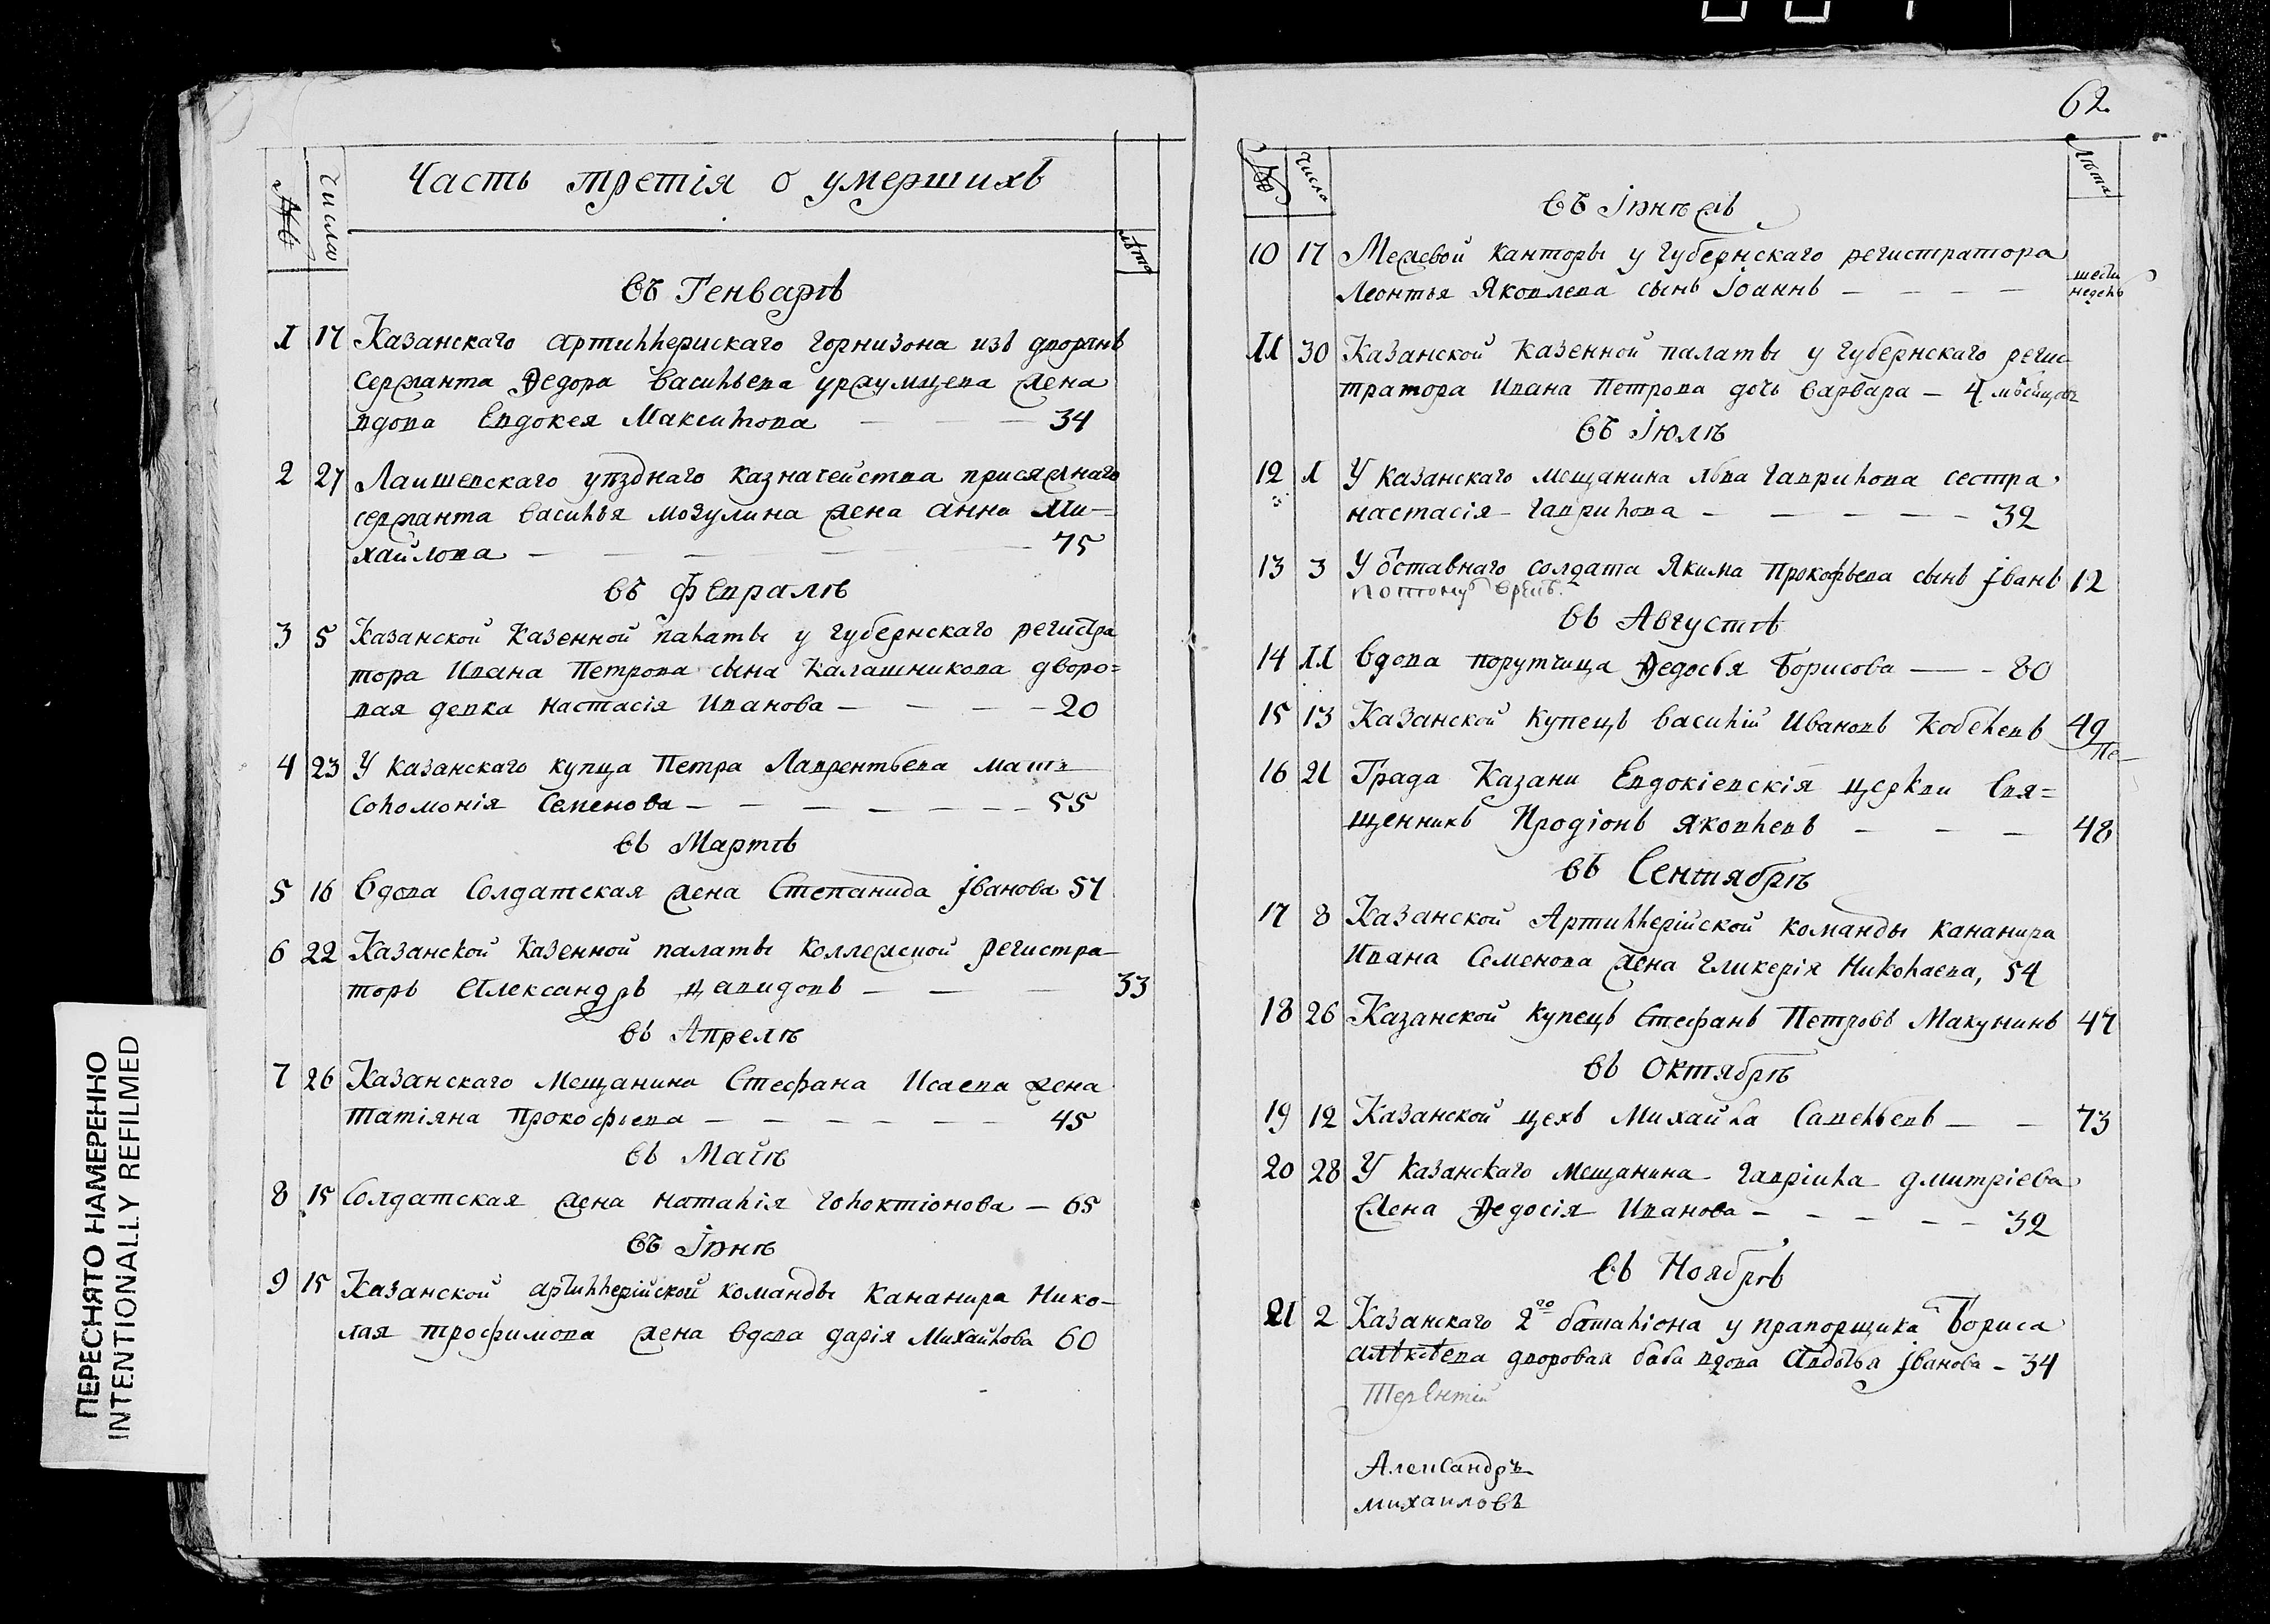 62.
№ Числа Часть третiя о умершихъ лѣта
въ Генварѣ
1 17 Казанскаго артиллерискаго горнизона изъ дворянъ
сержанта Ѳедора Васильева уржумцева жена
вдова Евдокея Максимова — — — 34
2 27 Лаишевскаго уѣзднаго казначейства присяжнаго
сержанта Василья Можулина жена Анна Ми-
хайлова — — — — — 75
въ Февралѣ
3 5 Казанской казенной палаты у губернскаго регистра
тора Ивана Петрова сына Калашникова дворо=
вая девка настасiя Иванова — — — — 20
4 23 У казанскаго купца Петра Лаврентьева мать
Соломонiя Семенова — — — — — — 55
въ Мартѣ
5 16 Вдова Солдатская жена Степанида Iванова 57
6 22 Казанской казенной палаты коллежской регистра-
торъ Александръ Давидовъ — — — 33
въ Апрелѣ
7 26 Казанскаго Мещанина Стефана Исаева жена
татiяна Прокофьева — — — — — — 45
въ Маiѣ
8 15 Солдатская жена наталiя Голоктiонова — 65
въ Iюнѣ
9 15 Казанской артиллерiйской команды Кананира Нико-
лая трофимова жена вдова дарiя Михайлова 60
№ Числа Лѣта
въ Iюнѣ
10 17 Межевой Канторы у Губернскаго регистратора
Леонтья Яковлева сынъ Iоаннъ — — — — шесть
недель
11 30 Казанской казенной палаты у губернскаго регис-
тратора Ивана Петрова дочь варвара — 4 мѣсяцовъ
въ Iюлѣ
12 1 У казанскаго мещанина Льва Гаврилова сестра
настасiя Гаврилова — — — — — 32
13 3 У Отставнаго солдата Якима Прокофьева сынъ Iванъ 12
въ Августѣ
14 11 вдова порутчица Ѳедосья Борисова — — 80
15 13 Казанской купецъ василiй Ивановъ Кобелевъ 49
16 21 Града Казани Евдокiевскiя церкви Свя=
щенникъ Иродiонъ Яковлевъ — — — 48
въ Сентябрѣ
17 8 Казанской Артиллерiйской команды кананира
Ивана Семенова жена Гликерiя Николаева, 54
18 26 Казанской купецъ Стефанъ Петровъ Макунинъ 47
въ Октябрѣ
19 12 Казанской цехъ Михайла Савельевъ — — 73
20 28 У казанскаго мещанина Гаврiила дмитрiева
жена Ѳедосiя Иванова — — — — — 32
въ Ноябрѣ
21 2 Казанскаго 2го баталiона у прапорщика Бориса
дворовая баба вдова Авдотья Iванова — 34
Терентiй
Александръ
михаиловъ
ПЕРЕСНЯТО НАМЕРЕННО
INTENTIONALLY REFILMED